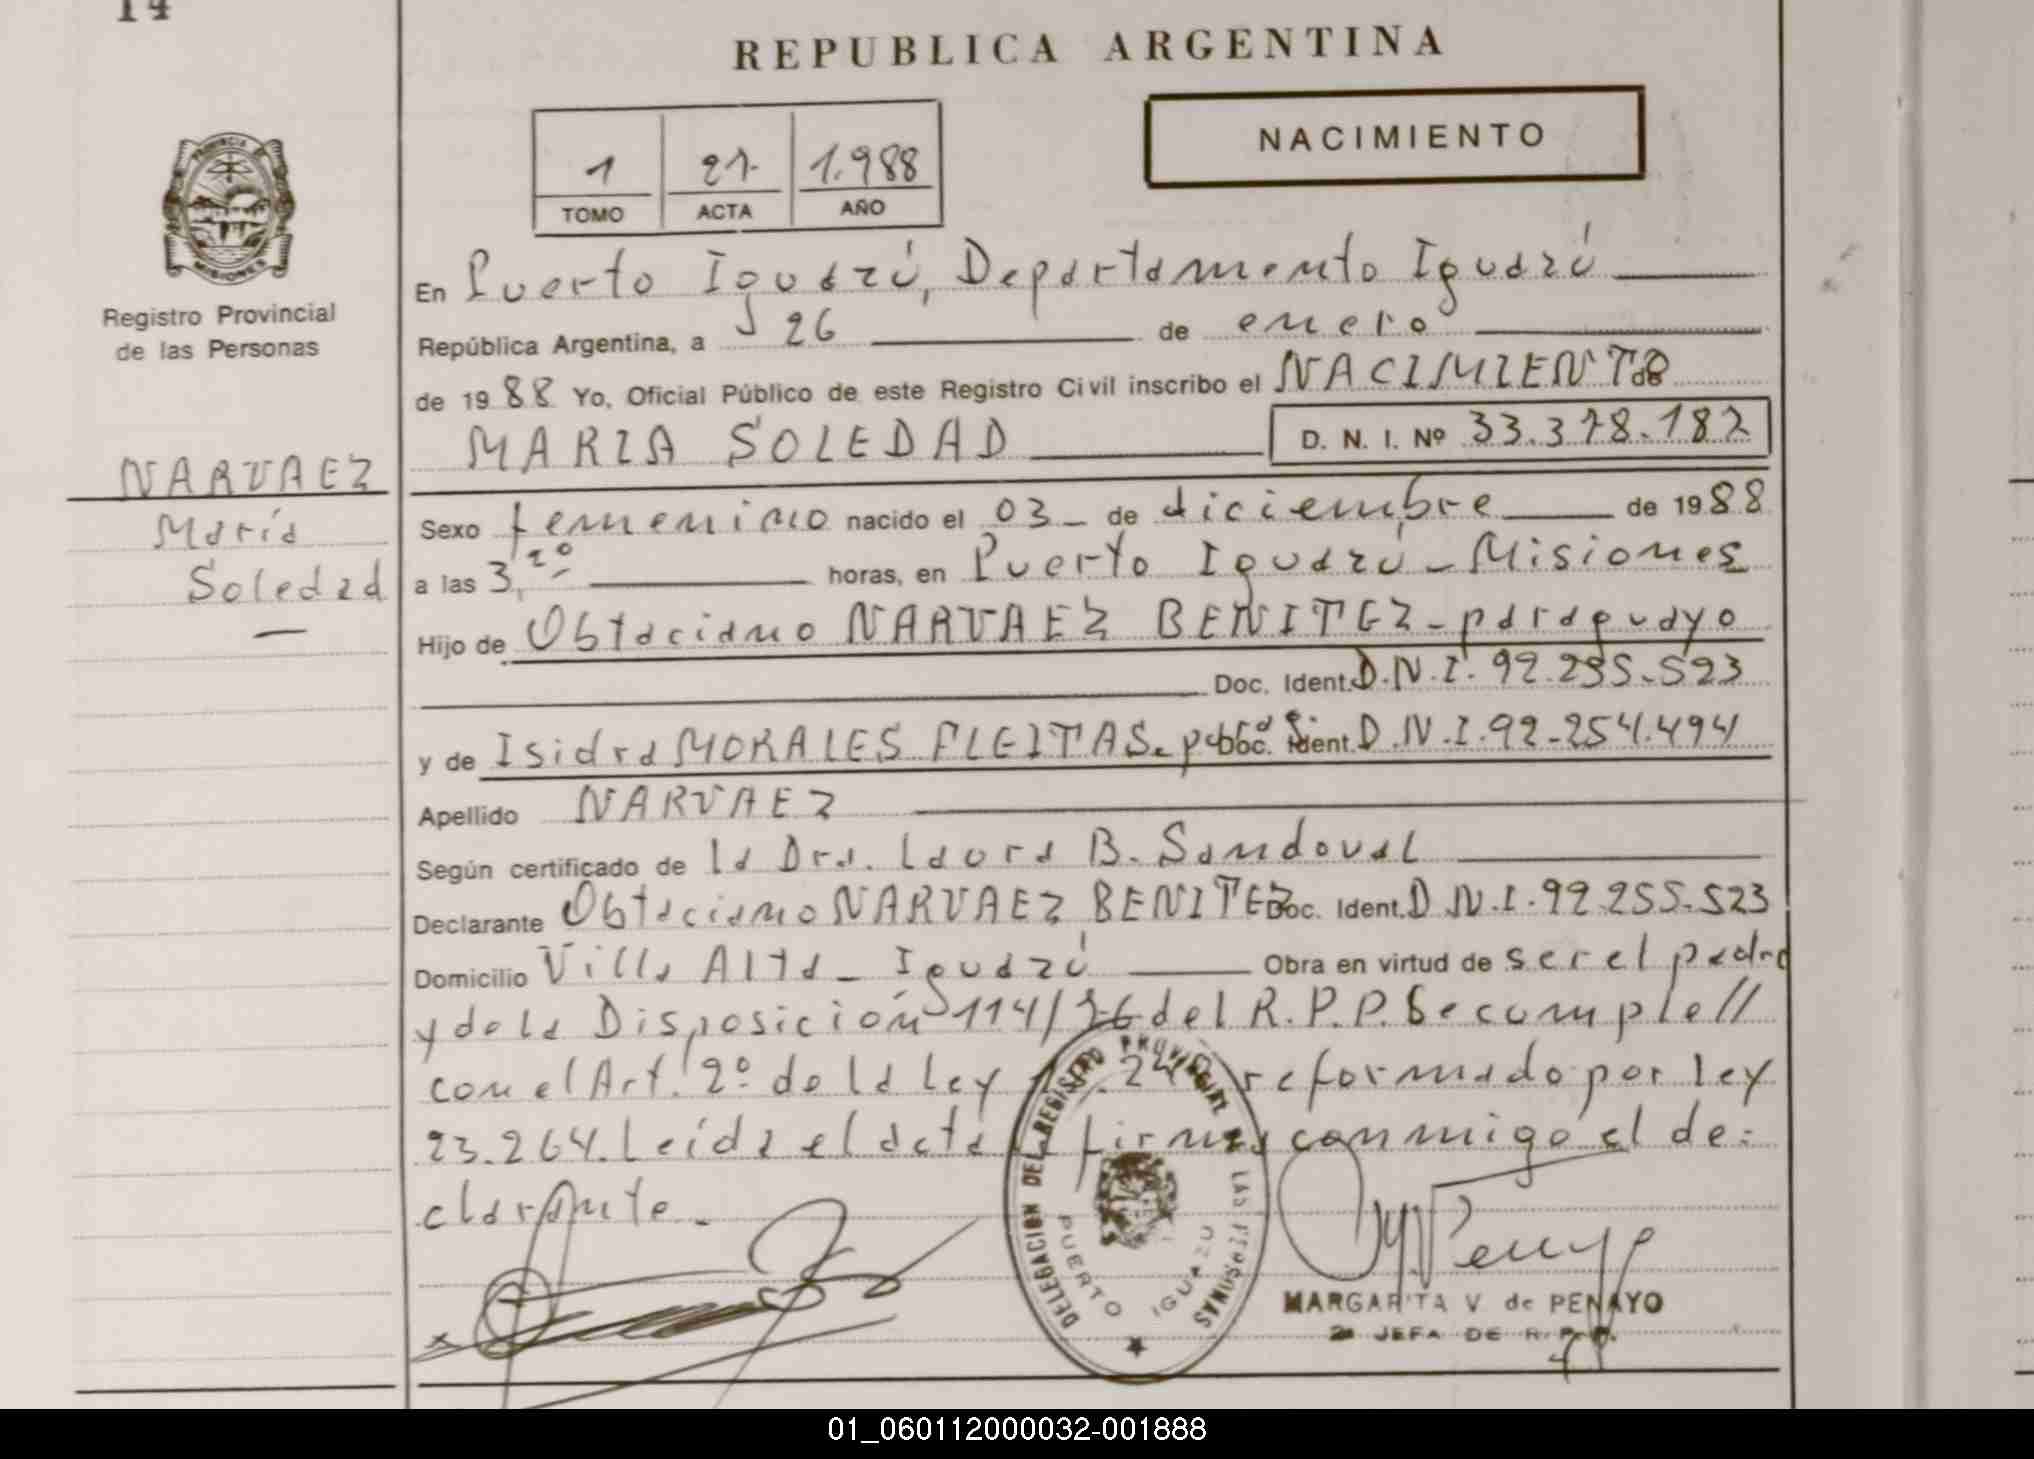 14
REPUBLICA ARGENTINA
NACIMIENTO
1 21- 1.988
TOMO ACTA AÑO
PROVINCIA DE MISIONES
Registro Provincial
de las Personas
NARVAEZ
María
Soledad
En Puerto Iguazú, Departamento Iguazú
República Argentina, a 26 de enero
de 1988 Yo, Oficial Público de este Registro Civil inscribo el NACIMIENTO de
MARIA SOLEDAD D. N. I. Nº 33.378.187
Sexo femenino nacido el 03 - de diciembre de 1988
a las 3,20 horas, en Puerto Iguazú - Misiones
Hijo de Obtaciano NARVAEZ BENITEZ - paraguayo
Doc. Ident. D.N.I. 92.255.523
y de Isidra MORALES FLEITAS - Doc. Ident. D.N.I. 92.254.494
Apellido NARVAEZ
Según certificado de la Dra. Laura B. Sandoval
Declarante Obtaciano NARVAEZ BENITEZ Doc. Ident. D.N.I. 92.255.523
Domicilio Villa Alta - Iguazú Obra en virtud de ser el padre
y de la Disposición 114/76 del R.P.P. Se cumple //
con el Art. 2º de la Ley reformado por ley
23.264. Leída el acta firma conmigo el de-
clarante.-
DELEGACION DEL REGISTRO PROVINCIAL DE LAS PERSONAS
PUERTO IGUAZU
MARGARITA V. de PENAYO
2ª JEFA DE R. P. P.
01_060112000032-001888